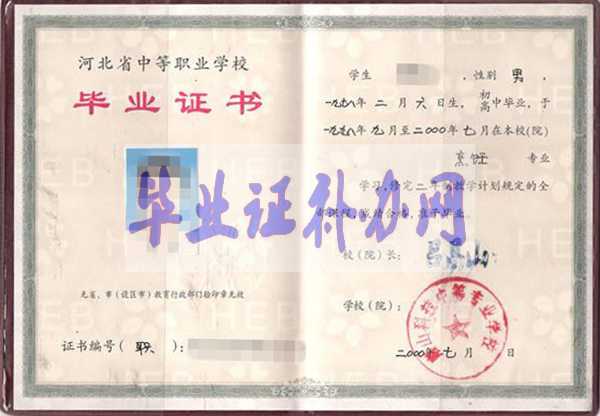 河北省中等职业学校
毕业证书
无省、市（设区市）教育行政部门验印章无效
证书编号（ 职 ）：
学生 ，性别 男 ，
一九 八年 二 月 六 日生，初
高中毕业，于
一九 八年 九 月至二〇〇〇年 七 月在本校(院)
专业
学习，修完 二 年制教学计划规定的全
部课程，成绩合格，准予毕业。
校（院）长：
学校（院）：
山科技中等专业学校
二〇〇〇年 七 月 日
毕业证补办网